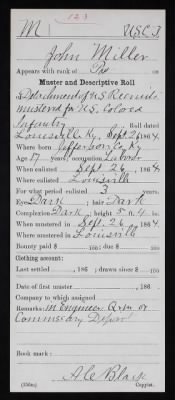 123
M U.S.C.T.
John Miller
Appears with rank of Pvt on
Muster and Descriptive Roll
Detachment of U.S. Recruits
mustered for U.S. Colored
Infantry
Roll dated
Louisville, Ky, Sept 26, 1864.
Where born Jefferson Co Ky
Age 17 years; occupation Laborer
When enlisted Sept 26, 1864.
Where enlisted Louisville
For what period enlisted 3 years.
Eyes Dark; hair Dark
Complexion Dark; height 5 ft. 4 in.
When mustered in Sept. 26, 1864.
Where mustered in Louisville
Bounty paid $ 100; due $ 100
Clothing account:
Last settled , 186 ; drawn since $ 100
Date of first muster , 186 .
Company to which assigned
Remarks: in Engineer Qrm or
Commissary Depot
Book mark:
A C Black
(356m) Copyist.